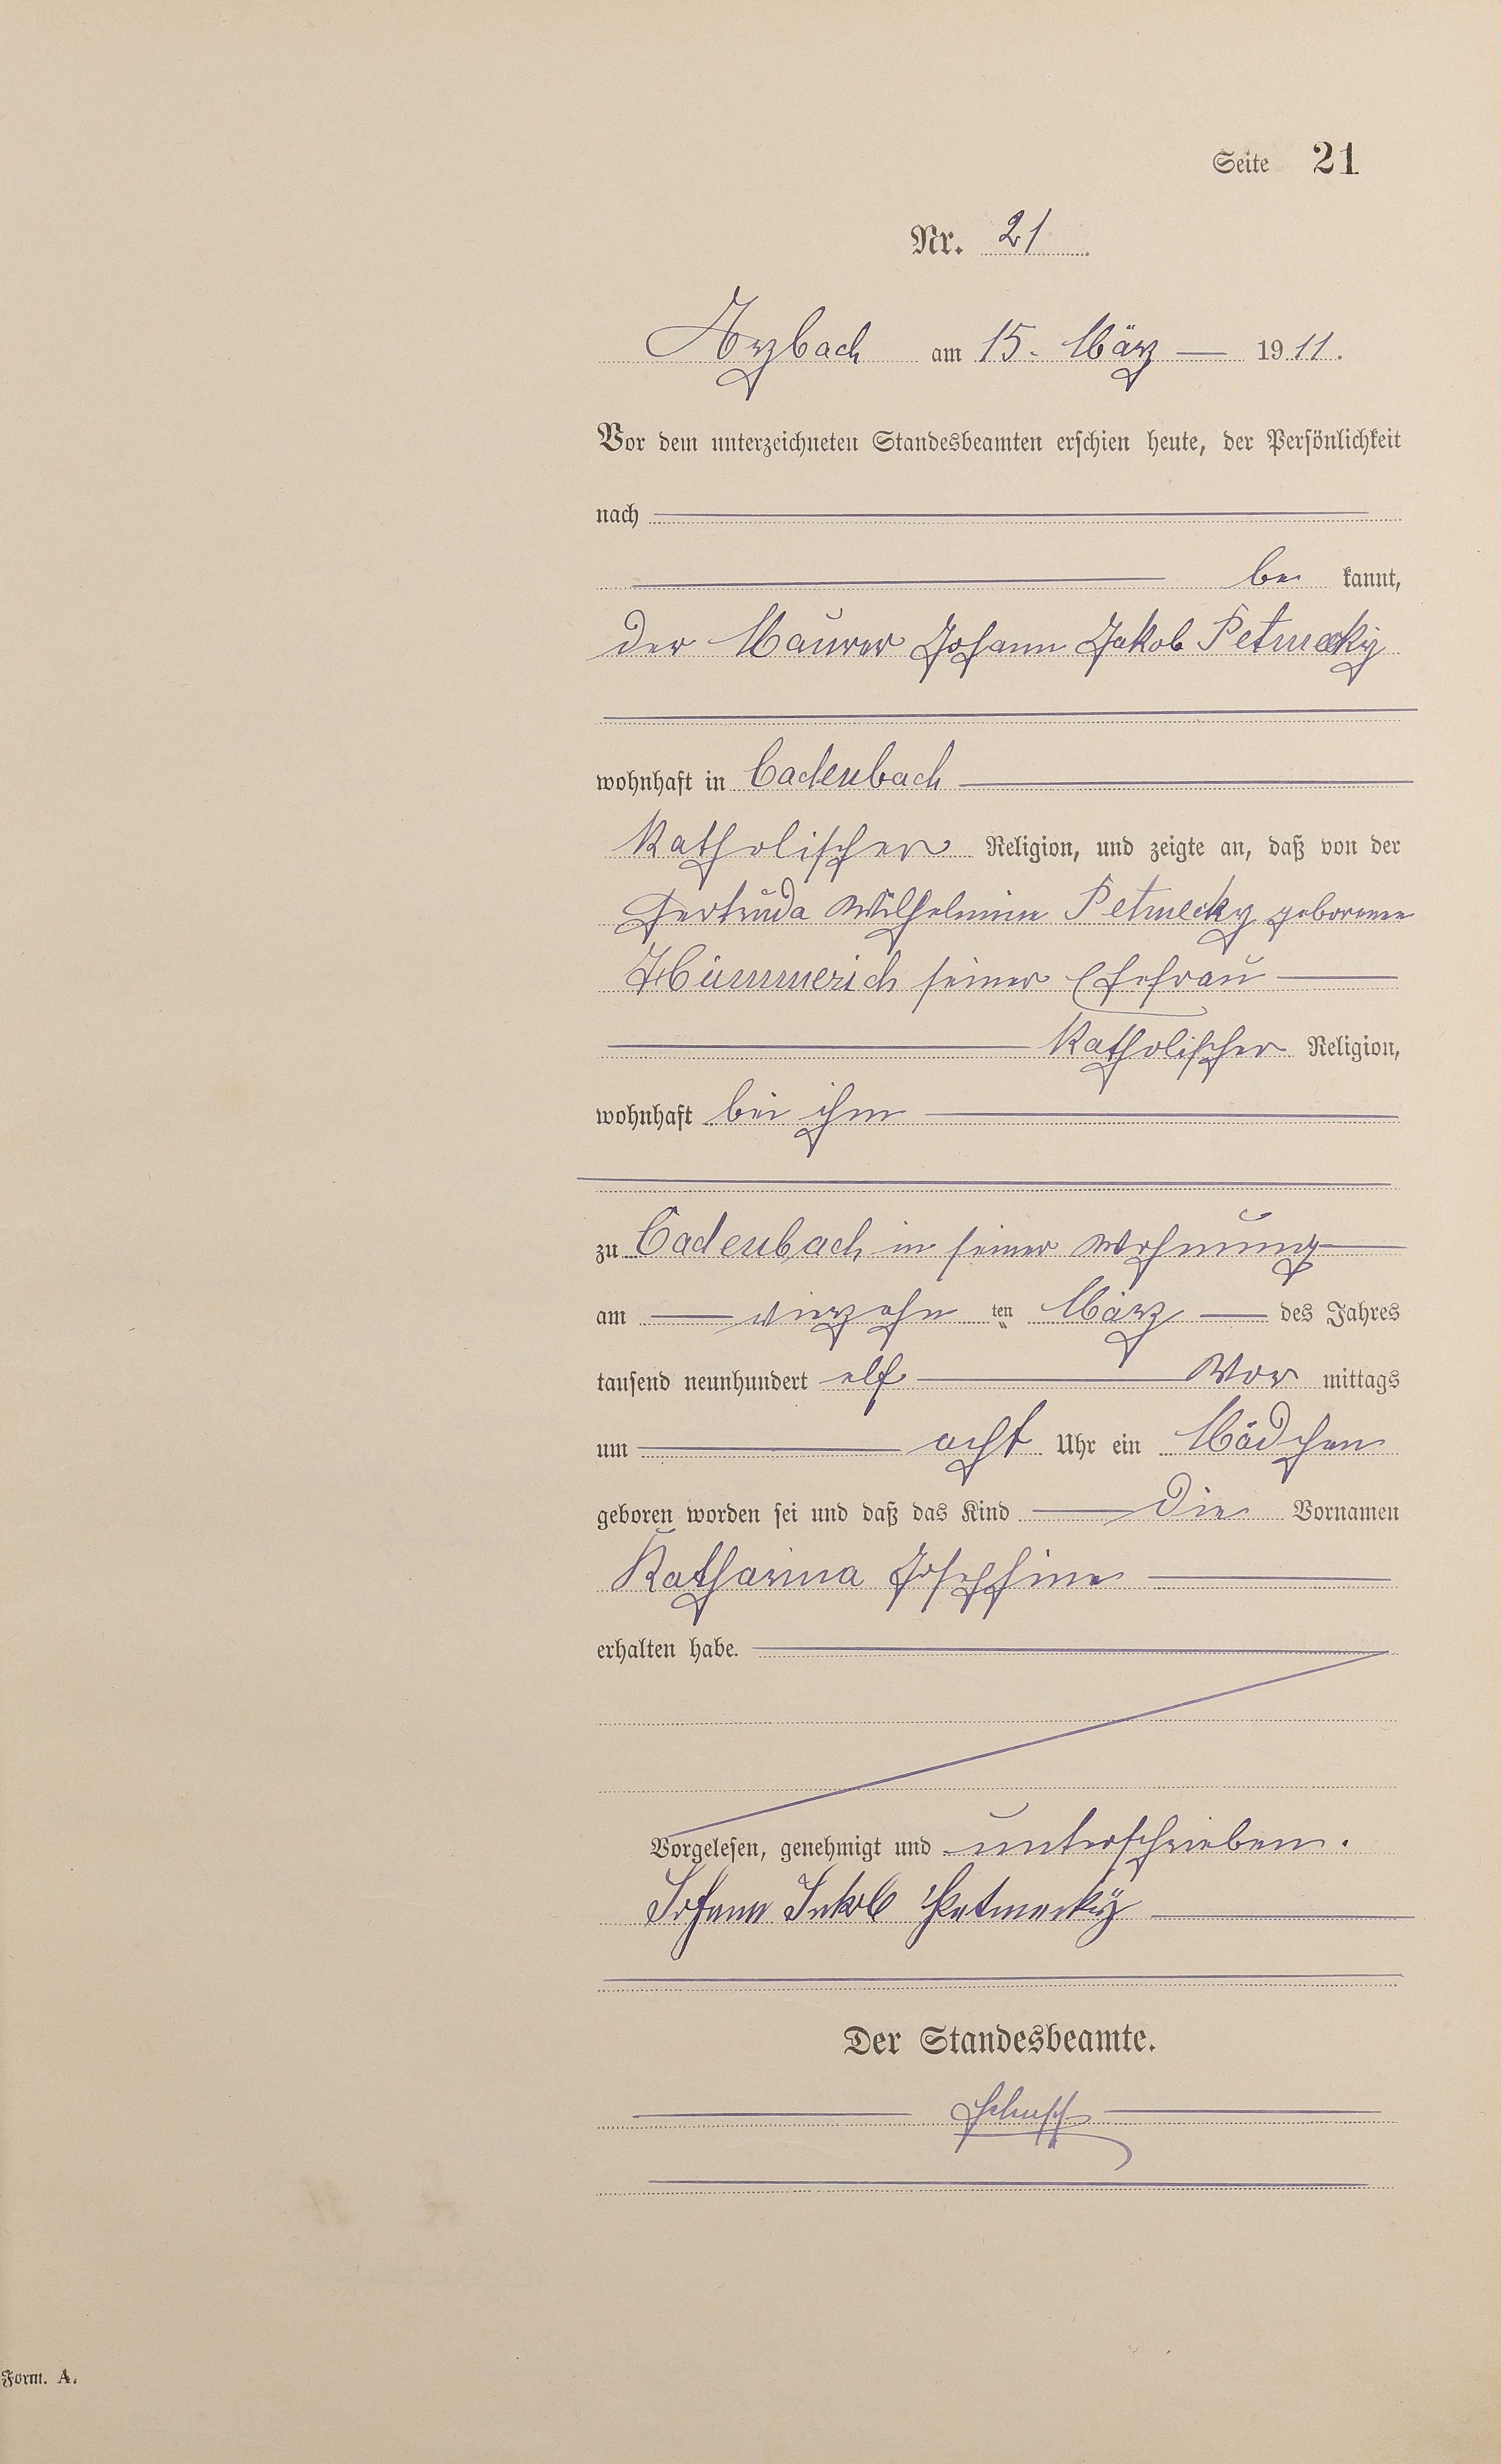 Seite 21
Nr. 21
Arzbach am 15. März 1911.
Vor dem unterzeichneten Standesbeamten erschien heute, der Persönlichkeit
nach
be kannt,
der Maurer Johann Jakob Petmecky
wohnhaft in Cadenbach
katholischer Religion, und zeigte an, daß von der
Gertruda Wilhelmine Petmecky geborene
Hümmerich seiner Ehefrau
katholischer Religion,
wohnhaft bei ihm
zu Cadenbach in seiner Wohnung
am vierzehn ten März des Jahres
tausend neunhundert elf Vor mittags
um acht Uhr ein Mädchen
geboren worden sei und daß das Kind die Vornamen
Katharina Josephine
erhalten habe.
Vorgelesen, genehmigt und unterschrieben.
Johann Jakob Petmecky
Der Standesbeamte.
Form. A.